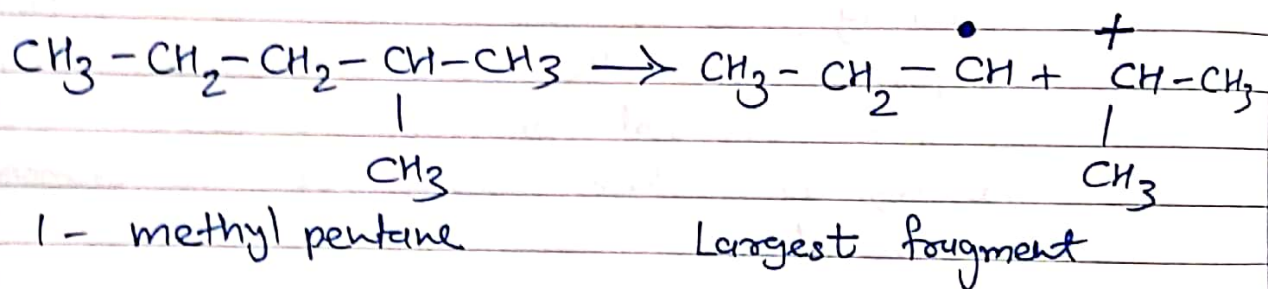 CH₃ - CH₂ - CH₂ - CH - CH₃ → CH₃ - CH₂ - ĊH + C⁺H - CH₃
|          |
CH₃          CH₃
1 - methyl pentane          Largest fragment